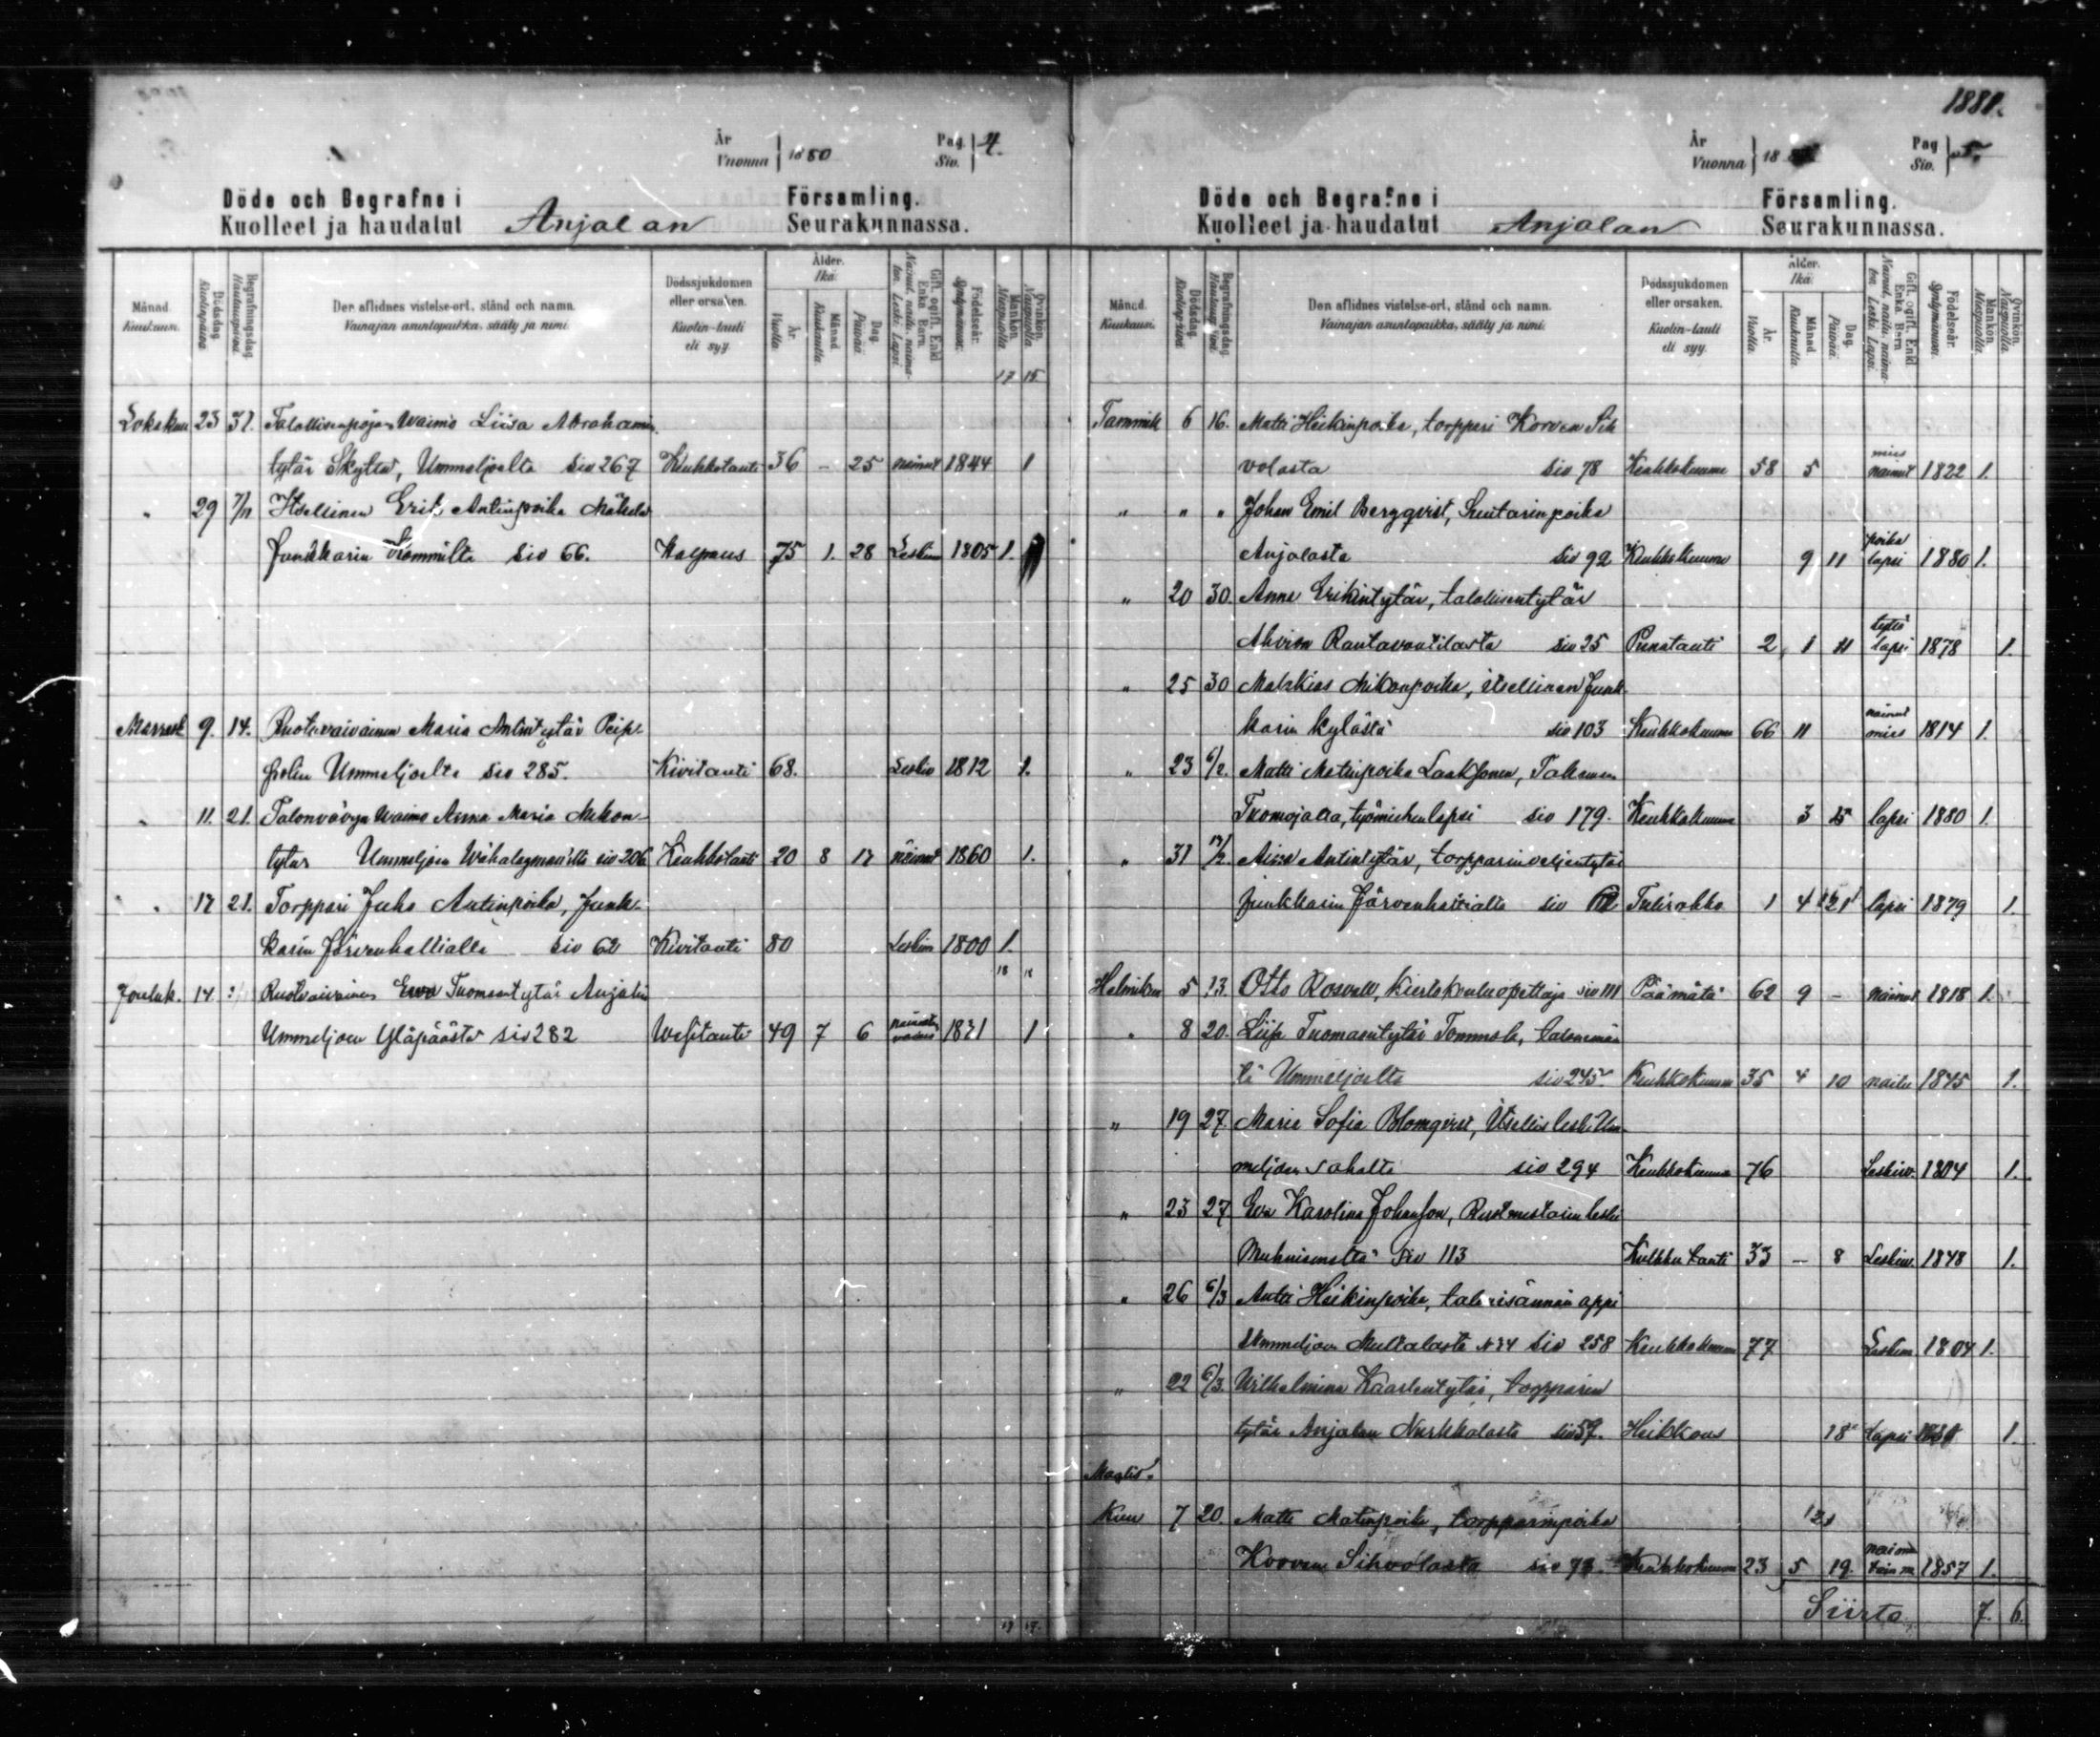 År
Vuonna } 1880
Pag.
Siv. } 4.
Döde och Begrafne i Församling.
Kuolleet ja haudatut Anjalan Seurakunnassa.
Månad. Kuukausi.
Dödsdag. Kuolinpäivä.
Begrafningsdag. Hautauspäivä.
Den aflidnes vistelse-ort, stånd och namn.
Vainajan asuntopaikka, sääty ja nimi.
Dödssjukdomen eller orsaken.
Kuolin-tauti eli syy.
Ålder. Ikä.
År. Vuotta.
Månad. Kuukautta.
Dag. Päivää.
Gift, ogift, Enkl. Enka, Barn.
Nainut, naitu, naima-ton, Leski, Lapsi.
Födelseår. Syntymävuosi.
Mankön. Miespuolia.
Qvinkön. Naispuolia.
17 15
Lokakuu 23 31. Talollisenpojan Waimo Liisa Abrahamin
tytär Skyttä, Ummeljoelta siv 267 Keuhkotauti 36 - 25 nainut 1844 1
" 29 7/11 Itsellinen Erik Antinpoika Mäkelä
Junkkarin siv 66. Halpaus 75 1. 28 Leskim 1805 1.
Marrask 9. 14. Ruotuvaivainen Maria Antintytär
Ummeljoelta siv 285. Kivitauti 68. Leskiv 1812 1.
" 11. 21. Talonvävyn Waimo Anna Maria
tytär Ummeljoen siv 206 Keuhkotauti 20 8 17 nainut 1860 1.
" 17 21. Torppari Juho Antinpoika, Junk-
karin Järvenkallialta siv 62 Kivitauti 80 Leskim 1800 1.
18 18
Jouluk. 14 Ruotivaivainen Ewa Tuomaantytär Anjalan
Ummeljoen Yläpäästä siv 282 Wesitauti 49 7 6 1831 1
17 19.
1881.
År
Vuonna } 18
Pag
Siv. } 5.
Döde och Begrafne i Församling.
Kuolleet ja haudatut Anjalan Seurakunnassa.
Månad. Kuukausi.
Dödsdag. Kuolinpäivä.
Begrafningsdag. Hautauspäivä.
Den aflidnes vistelse-ort, stånd och namn.
Vainajan asuntopaikka, sääty ja nimi.
Dödssjukdomen eller orsaken.
Kuolin-tauti eli syy.
Ålder. Ikä.
År. Vuotta.
Månad. Kuukautta.
Dag. Päivää.
Gift, ogift, Enkl. Enka, Barn.
Nainut, naitu, naima-ton, Leski, Lapsi.
Födelseår. Syntymävuosi.
Mankön. Miespuolia.
Qvinkön. Naispuolia.
Tammik 6 16. Matti Heikinpoika, torppari Korven Sih
volasta siv 78 Keuhkokuume 58 5 mies nainut 1822 1.
" " " Johan Emil Bergqvist, Suutarinpoika
Anjalasta siv 92 Keuhkokuume 9 11 poika lapsi 1880 1.
" 20 30. Anna Erikintytär, talollisentytär
Ahvion Rantavoutilasta siv 25 Punatauti 2 1 11 tyttö lapsi 1878 1.
" 25 30 Matskias Mikonpoika, itsellinen Junk
karin kylästä siv 103 Keuhkokuume 66 11 nainut mies 1814 1.
" 23 6/2. Matti Matinpoika Laaksonen,
työmiehenlapsi siv 179. Keuhkokuume 3 15 lapsi 1880 1.
" 31 13/2. Antintytär, torpparinveljentytär
Junkkarin Järvenkalliolta siv Tulirokko 1 4 21 lapsi 1879 1.
Helmikuu 5 13. Otto Rosvall, Kiertokouluopettaja siv 111 Päämätä 62 9 - nainut 1818 1.
" 8 20. Liisa Tuomaantytär Tommola, talonemän
tä Ummeljoelta siv 245. Keuhkokuume 35 4 10 naitu 1845 1.
" 19 27. Maria Sofia Blomqvist, Itsellis leski Um-
meljoen sahalta siv 294 Keuhkokuume 76 Leskiv. 1804 1.
" 23 27 Eva Karolina Johansson, Ruotmestarin leski
Muhniemeltä siv 113 Kulkku tauti 33 - 8 Leskiv. 1848 1.
" 26 6/3 Antti Heikinpoika, talonisännän appi
Ummeljoen Mullalasta N 34 siv 258 Keuhkokuume 77 Leskim 1804 1.
" 22 6/3. Wilhelmina Kaarlentytär, torpparin
tytär Anjalan Nurkkalasta siv 59. Heikkous 18 Lapsi 1.
Maalis-
kuu 7 20. Matti Matinpoika, torpparinpoika
Korven Sihvolasta siv 78. Keuhkokuume 23 5 19. 1857 1.
Siirto 7. 6.